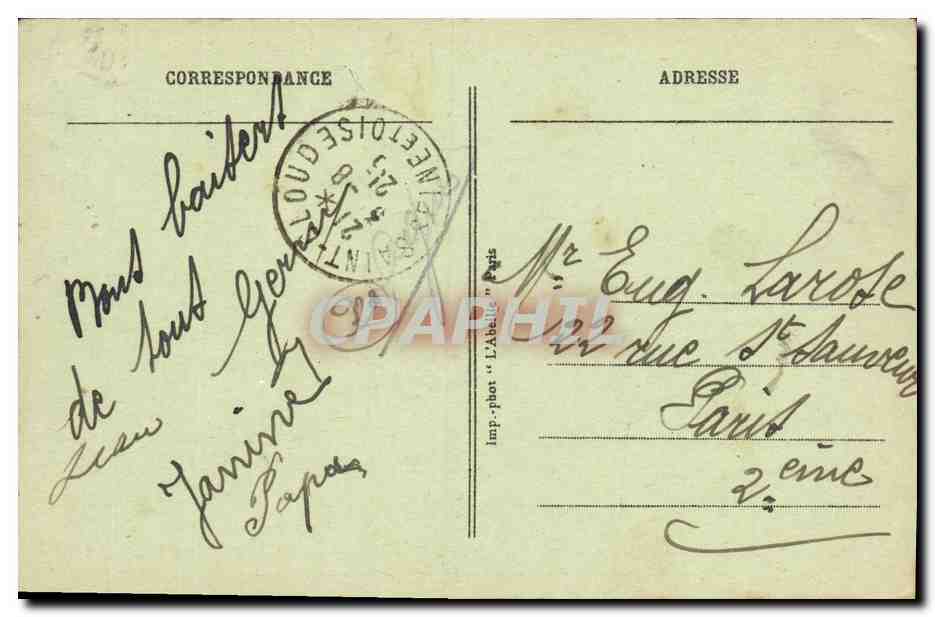 CORRESPONDANCE
Bons baisers
de tous
Jean
Janine
Papa
SAINT CLOUD SEINE ET OISE
21
8
25
CPAPHIL
Imp.-phot "L'Abeille" Paris
ADRESSE
Mr Eug. Larose
22 rue St Sauveur
Paris
2.eme